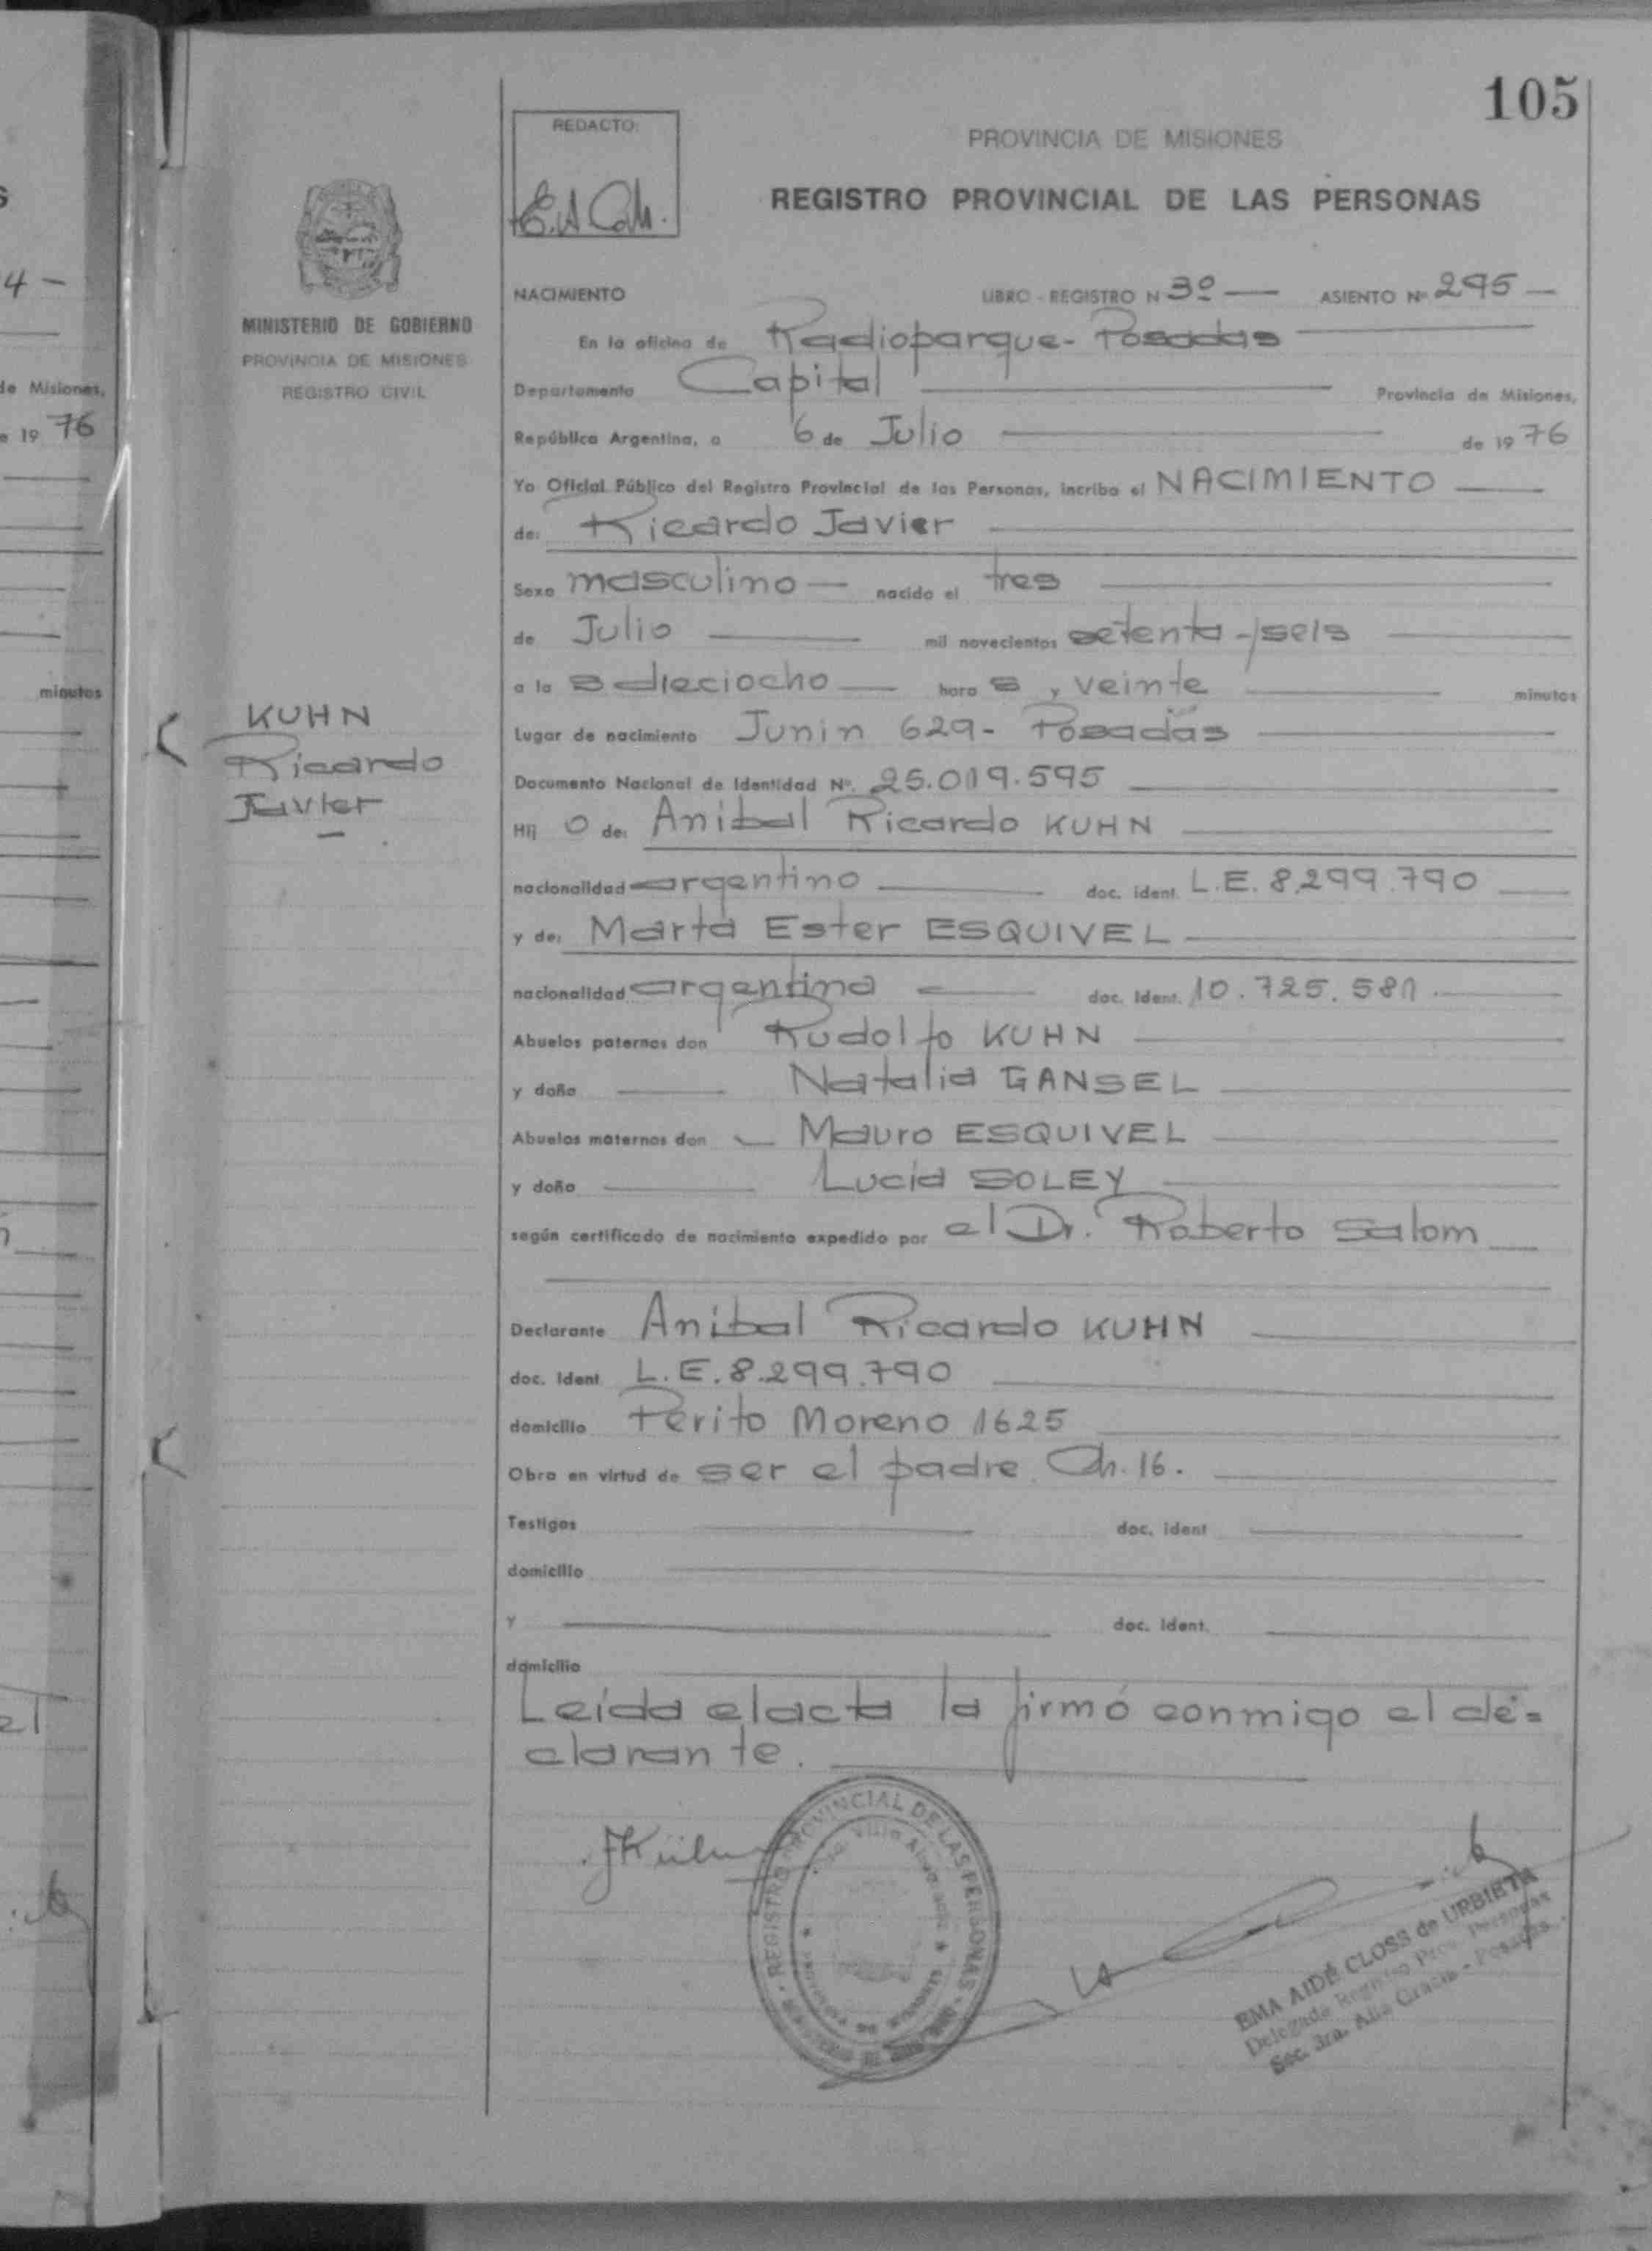 105
REDACTO:
PROVINCIA DE MISIONES
REGISTRO PROVINCIAL DE LAS PERSONAS
MINISTERIO DE GOBIERNO
PROVINCIA DE MISIONES
REGISTRO CIVIL
4 -
de Misiones,
19 76
minutos
el
KUHN
Ricardo
Javier
NACIMIENTO LIBRO - REGISTRO N 3º — ASIENTO Nº 295 —
En la oficina de Radioparque - Posadas
Departamento Capital Provincia de Misiones,
República Argentina, a 6 de Julio de 1976
Yo Oficial Público del Registro Provincial de las Personas, incribo el NACIMIENTO
de: Ricardo Javier
Sexo masculino — nacido el tres
de Julio mil novecientos setenta y seis
a la s dieciocho — hora s y veinte minutos
Lugar de nacimiento Junin 629 - Posadas
Documento Nacional de Identidad Nº. 25.019.595
Hij o de: Anibal Ricardo KUHN
nacionalidad argentino doc. ident. L.E. 8.299.790
y de: Marta Ester ESQUIVEL
nacionalidad argentina doc. Ident. 10.725.581.
Abuelos paternos don Rudolfo KUHN
y doña Natalia GANSEL
Abuelos maternos don Mauro ESQUIVEL
y doña Lucia SOLEY
según certificado de nacimiento expedido por el Dr. Roberto Salom
Declarante Anibal Ricardo KUHN
doc. Ident. L.E. 8.299.790
domicilio Perito Moreno 1625
Obra en virtud de ser el padre. Ch. 16.
Testigos doc. ident
domicilio
y doc. Ident.
domicilio
Leída el acta la firmó conmigo el de=
clarante.
REGISTRO PROVINCIAL DE LAS PERSONAS
EMA AIDÉ CLOSS de URBIETA
Delegada Registro Prov. Personas
Sec. 3ra. Alta Gracia - Posadas